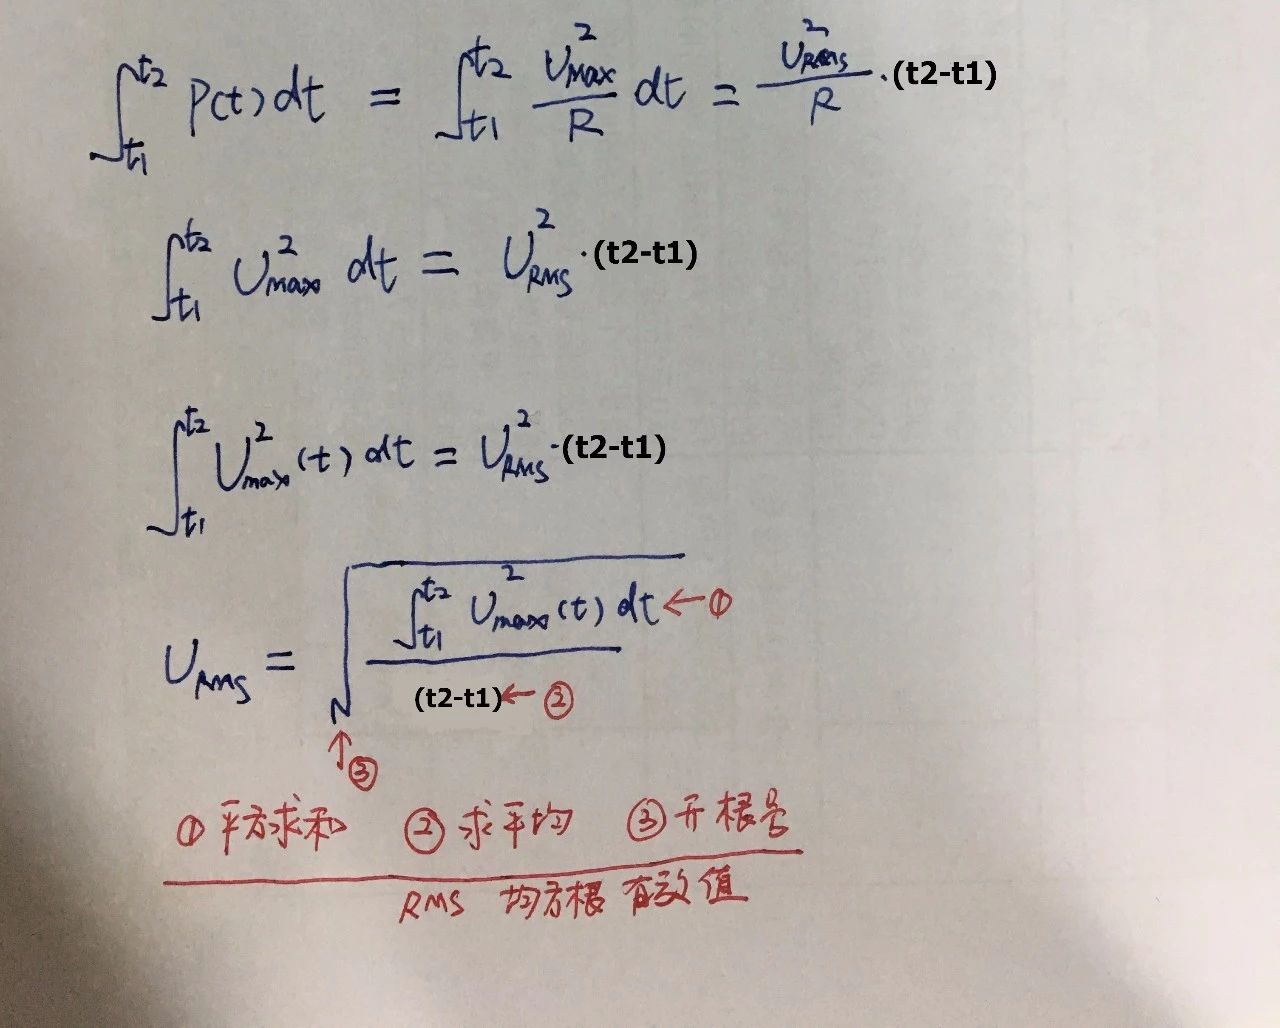 ∫_{t1}^{t2} P(t) dt = ∫_{t1}^{t2} U²max/R dt = U²RMS/R ·(t2-t1)
∫_{t1}^{t2} U²max dt = U²RMS ·(t2-t1)
∫_{t1}^{t2} U²max(t) dt = U²RMS ·(t2-t1)
URMS = √(∫_{t1}^{t2} U²max(t) dt / (t2-t1)) ←① ←② ↑③
①平方求和 ②求平均 ③开根号
RMS 均方根 有效值